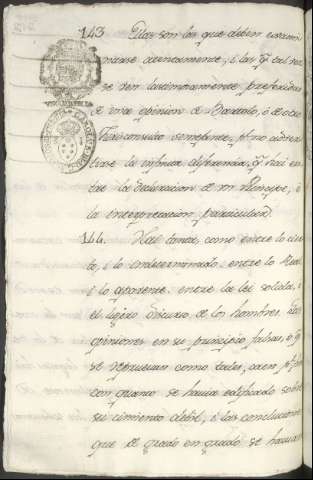 143 Ellas son las que deben exami
narse atentamente, i las q̃ tal vez
se ven lastimosamente preferidas
de una opinion de Bartolo, ò de otro
Jurisconsulto semejante, pr. no adver
tirse la infinita diferencia, q̃ hai en
tre la declaracion de un Principe, i
la interpretacion particular.
144. Hai tanta como entre lo cier
to, i lo indeterminado: entre lo Real
i lo aparente: entre la lei solida, i
el ligero discurso de los hombres. Las
opiniones en su principio falsas, o q̃
se reprueban como tales, caen, pr.
con quanto se havia edificado sobre
su cimiento debil, i las conclusiones
que de grado en grado se havian